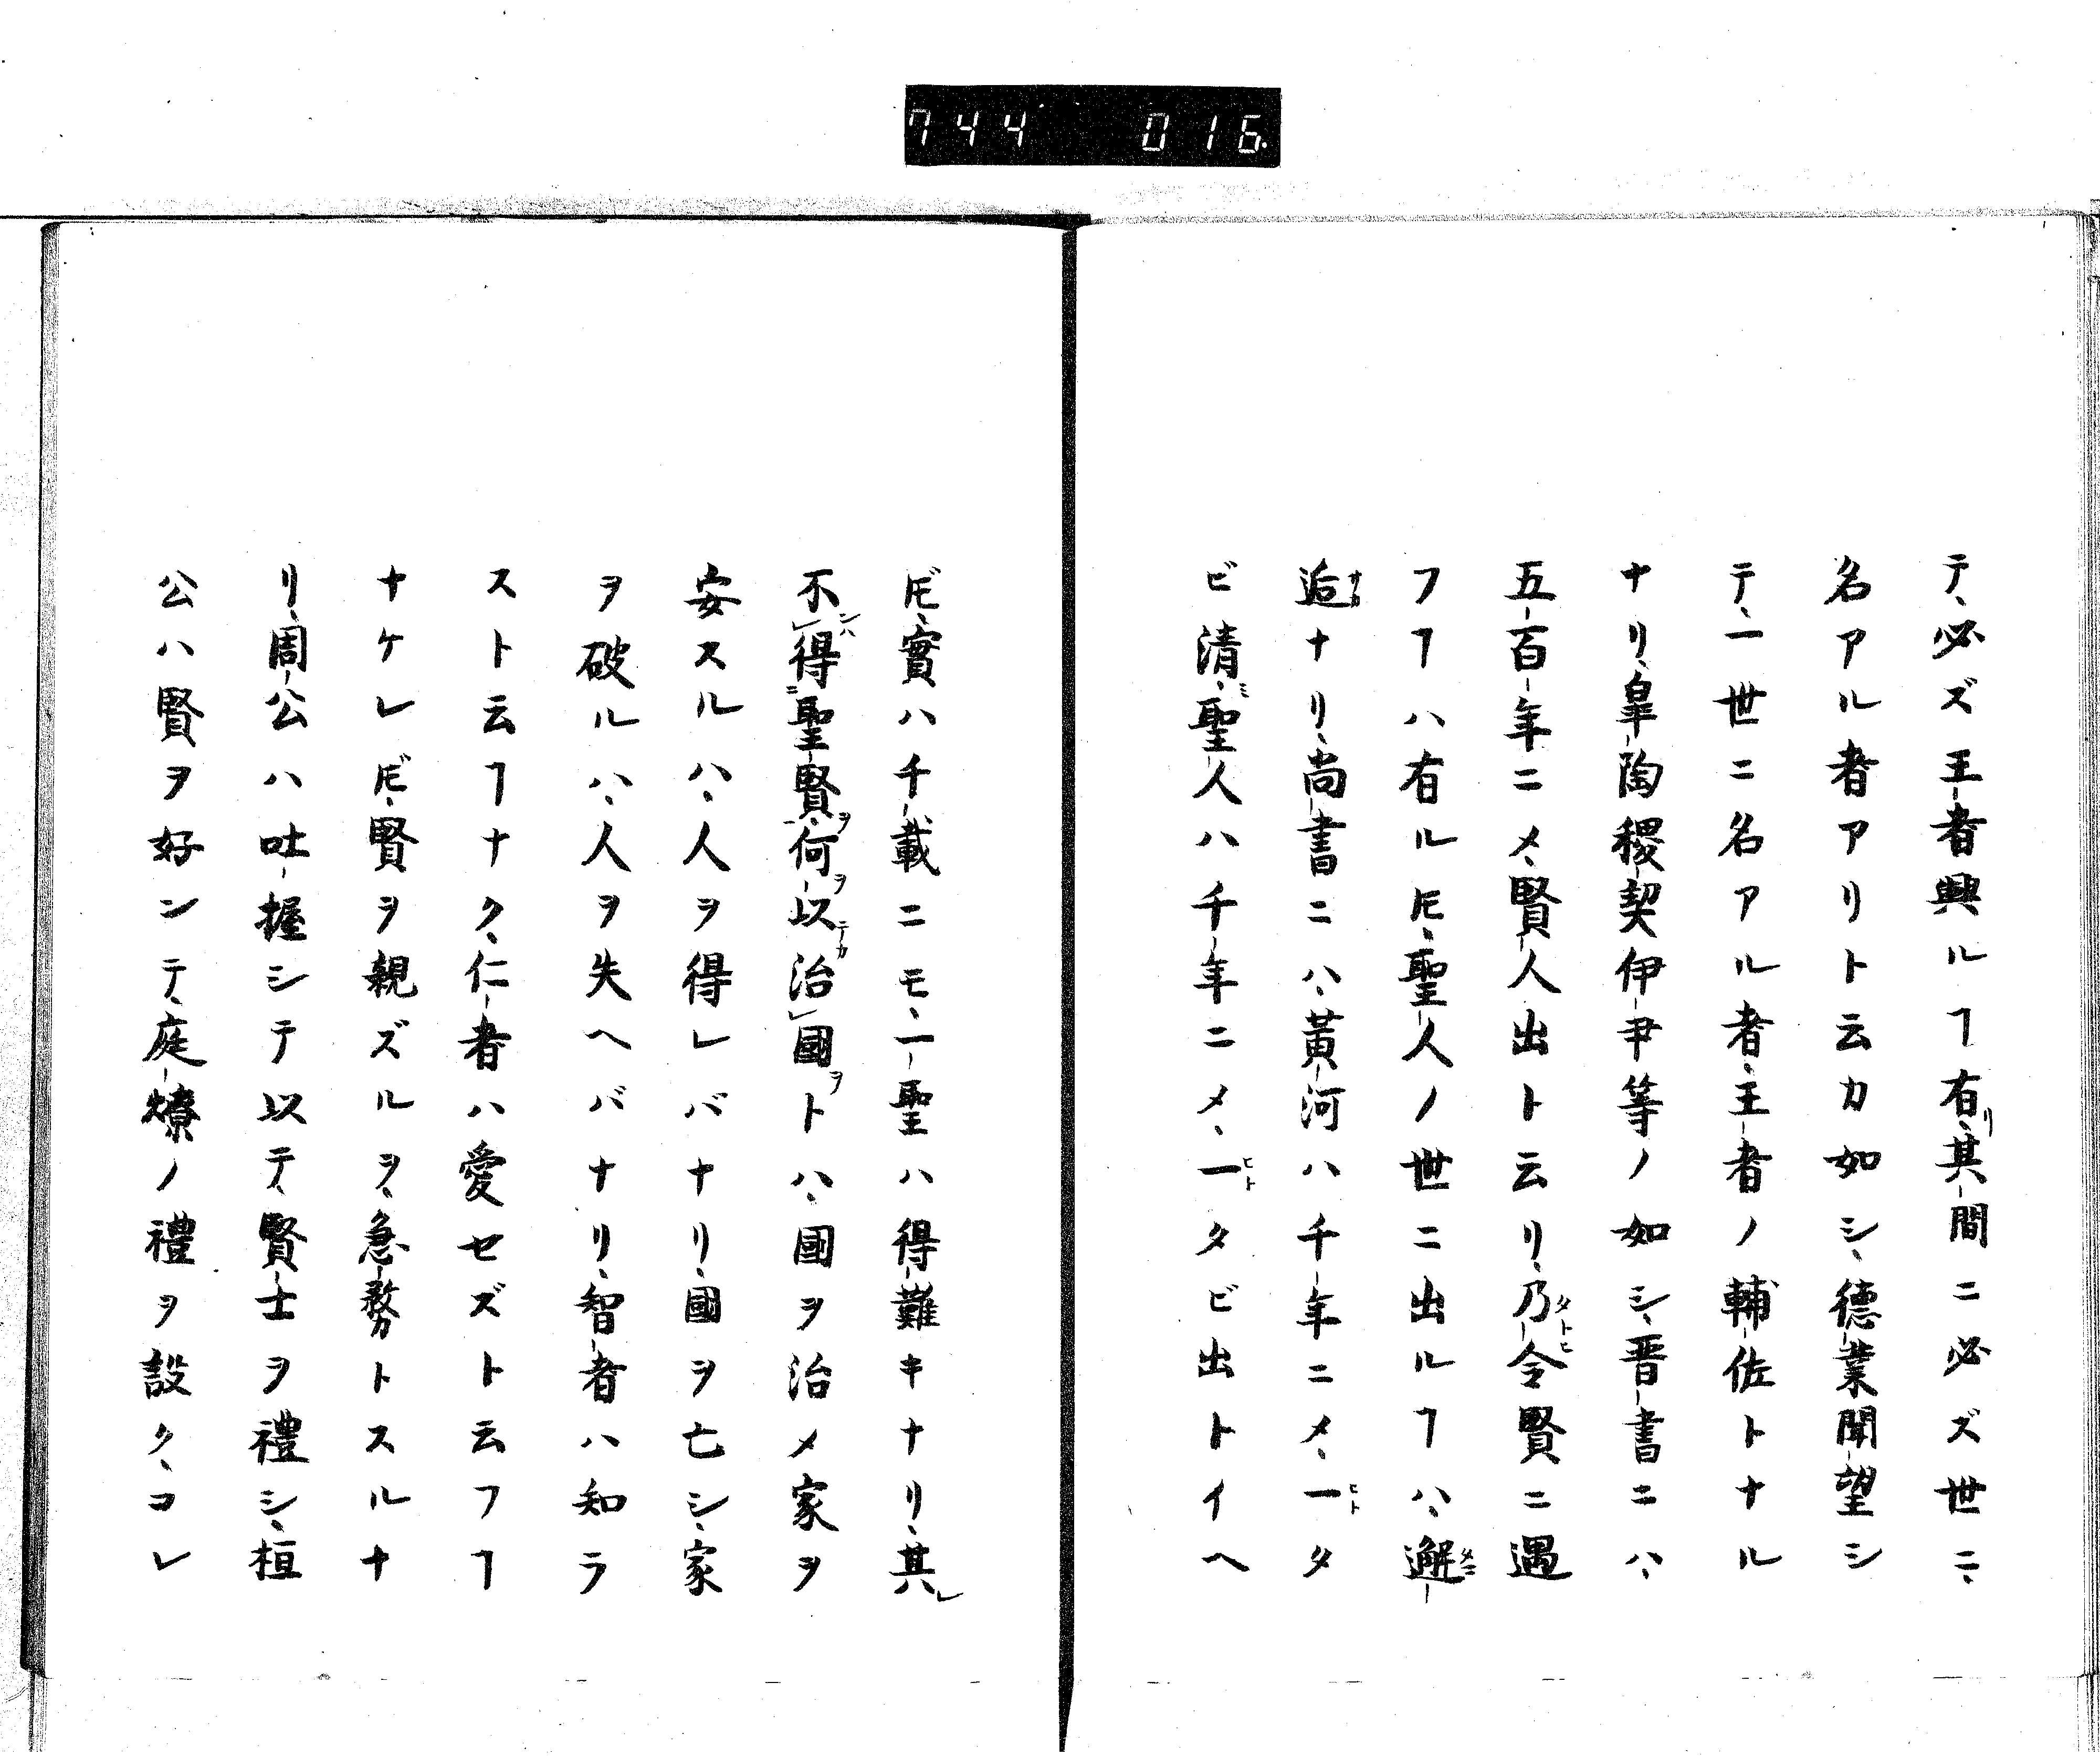 744 016
テ、必ズ王者興ルヿ有リ、其間ニ必ズ世ニ、
名アル者アリト云カ如シ、德業聞望シ
テ、一世ニ名アル者、王者ノ輔佐トナル
ナリ、皐陶稷契伊尹等ノ如シ、晋書ニハ、
五百年ニメ、賢人出ト云リ、乃令タトヒ賢ニ遇
フヿハ有ル𪜈、聖人ノ世ニ出ルヿハ、邂
逅ナリ、尚書ニハ、黄河ハ千年ニメ、一ヒトタ
ビ清ミ、聖人ハ千年ニメ、一ヒトタビ出トイヘ
𪜈、實ハ千載ニモ、一聖ハ得難キナリ、其レ
不ンハ㆑得ニ聖賢ヲ㆒何ヲ以テカ治㆑國ヲトハ、國ヲ治メ家ヲ
安スルハ、人ヲ得レバナリ、國ヲ亡シ、家
ヲ破ルハ、人ヲ失ヘバナリ、智者ハ知ラ
スト云ヿナク、仁者ハ愛セズト云フヿ
ナケレ𪜈、賢ヲ親ズルヲ、急務トスルナ
リ、周公ハ吐握シテ以テ、賢士ヲ禮シ、桓
公ハ賢ヲ好ンテ、庭燎ノ禮ヲ設ク、コレ